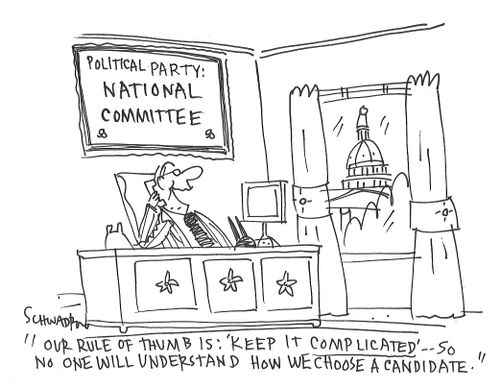 POLITICAL PARTY:
NATIONAL
COMMITTEE
SCHWADRON
"OUR RULE OF THUMB IS: 'KEEP IT COMPLICATED'--SO
NO ONE WILL UNDERSTAND HOW WE CHOOSE A CANDIDATE."